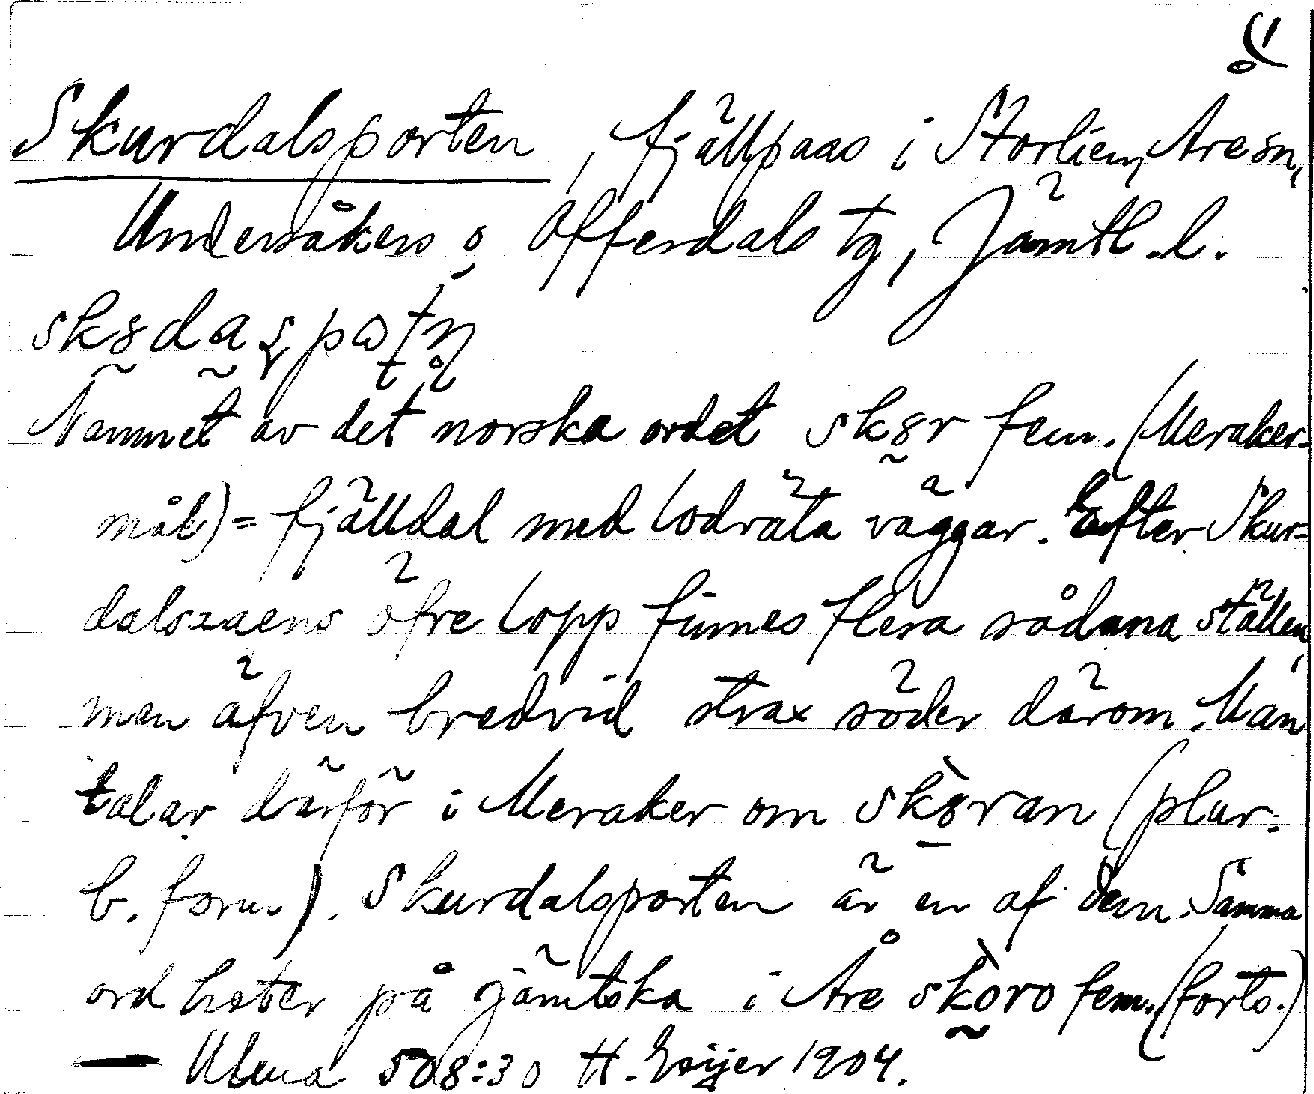 Skurdalsporten, fjällpass i Storlien, Åre sn,
Undersåkers o Offerdals tg, Jämtl. l.
Namnet av det norska ordet skɞr fem. (Meraker-
mål) = fjälldal med lodräta väggar. Efter Skur=
dalsåens öfre lopp finnes flera sådana ställen,
men äfven bredvid strax söder därom. Man
talar därför i Meraker om skɞ̀ran (plur.
b. form). Skurdalsporten är en af dem. Samma
ord heter på jämtska i Åre skòro fem. (forts.)
— Ulma 508:30 H. Geijer 1904.